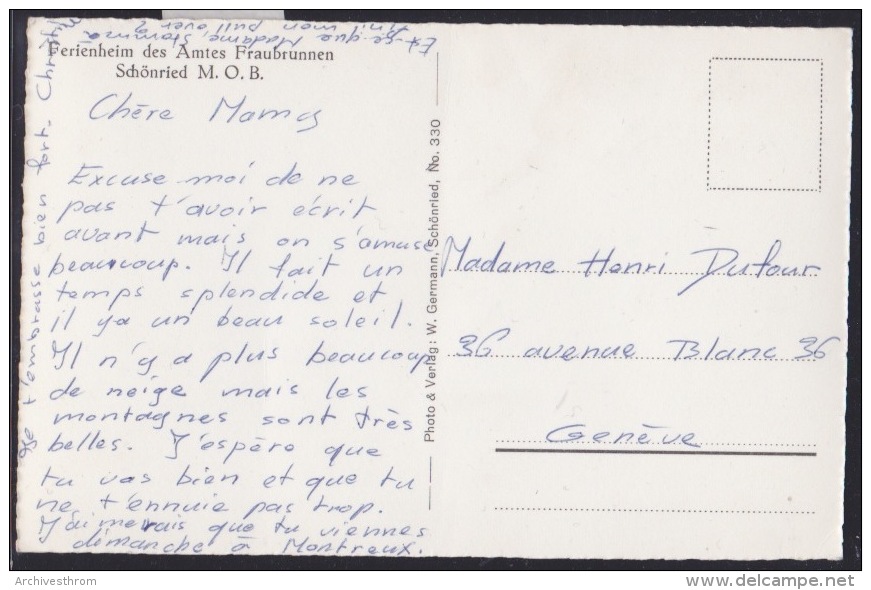 Ferienheim des Amtes Fraubrunnen
Schönried M. O. B.
Chère Mamy
Excuse moi de ne
pas t'avoir écrit
avant mais on s'amuse
beaucoup. Il fait un
temps splendide et
il y a un beau soleil.
Il n'y a plus beaucoup
de neige mais les
montagnes sont très
belles. J'espère que
tu vas bien et que tu
ne t'ennuie pas trop.
J'aimerais que tu viennes
dimanche à Montreux.
Je t'embrasse bien fort.
Est-ce-que Madame
fini mon pull over ?
Photo & Verlag: W. Germann, Schönried, No. 330
Madame Henri Dufour
36 avenue Blanc 36
Genève
Archivesthrom
delcampe.net